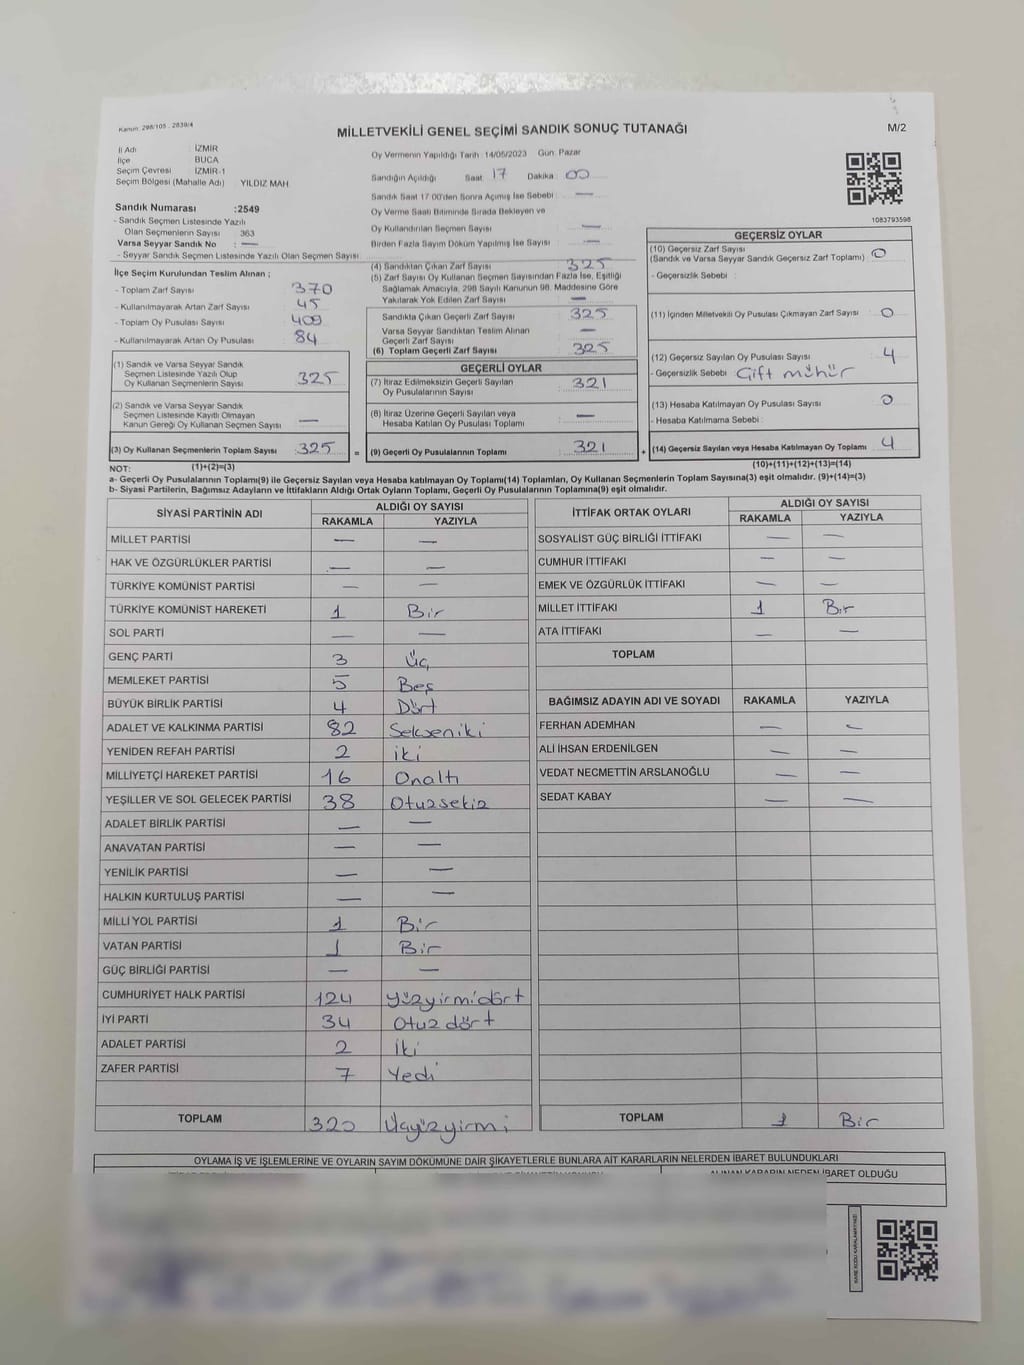 Kanun: 298/105 . 2839/4
MİLLETVEKİLİ GENEL SEÇİMİ SANDIK SONUÇ TUTANAĞI
M/2
İl Adı : İZMİR
İlçe : BUCA
Seçim Çevresi : İZMİR-1
Seçim Bölgesi (Mahalle Adı) YILDIZ MAH
Sandık Numarası :2549
- Sandık Seçmen Listesinde Yazılı
Olan Seçmenlerin Sayısı 363
Varsa Seyyar Sandık No : —
- Seyyar Sandık Seçmen Listesinde Yazılı Olan Seçmen Sayısı
İlçe Seçim Kurulundan Teslim Alınan ;
- Toplam Zarf Sayısı 370
- Kullanılmayarak Artan Zarf Sayısı 45
- Toplam Oy Pusulası Sayısı 409
- Kullanılmayarak Artan Oy Pusulası 84
(1) Sandık ve Varsa Seyyar Sandık
Seçmen Listesinde Yazılı Olup
Oy Kullanan Seçmenlerin Sayısı 325
(2) Sandık ve Varsa Seyyar Sandık
Seçmen Listesinde Kayıtlı Olmayan
Kanun Gereği Oy Kullanan Seçmen Sayısı —
(3) Oy Kullanan Seçmenlerin Toplam Sayısı 325 =
Oy Vermenin Yapıldığı Tarih :14/05/2023 Gün: Pazar
Sandığın Açıldığı Saat: 17 Dakika: 00
Sandık Saat 17:00'den Sonra Açılmış İse Sebebi : —
Oy Verme Saati Bitiminde Sırada Bekleyen ve
Oy Kullandırılan Seçmen Sayısı : —
Birden Fazla Sayım Döküm Yapılmış İse Sayısı : —
(4) Sandıktan Çıkan Zarf Sayısı 325
(5) Zarf Sayısı Oy Kullanan Seçmen Sayısından Fazla İse, Eşitliği
Sağlamak Amacıyla, 298 Sayılı Kanunun 98. Maddesine Göre
Yakılarak Yok Edilen Zarf Sayısı : —
Sandıkta Çıkan Geçerli Zarf Sayısı : 325
Varsa Seyyar Sandıktan Teslim Alınan
Geçerli Zarf Sayısı : —
(6) Toplam Geçerli Zarf Sayısı : 325
GEÇERLİ OYLAR
(7) İtiraz Edilmeksizin Geçerli Sayılan
Oy Pusulalarının Sayısı : 321
(8) İtiraz Üzerine Geçerli Sayılan veya
Hesaba Katılan Oy Pusulası Toplamı : —
(9) Geçerli Oy Pusulalarının Toplamı : 321 +
1083793598
GEÇERSİZ OYLAR
(10) Geçersiz Zarf Sayısı
(Sandık ve Varsa Seyyar Sandık Geçersiz Zarf Toplamı) : 0
- Geçersizlik Sebebi :
(11) İçinden Milletvekili Oy Pusulası Çıkmayan Zarf Sayısı : 0
(12) Geçersiz Sayılan Oy Pusulası Sayısı : 4
- Geçersizlik Sebebi : Çift mühür
(13) Hesaba Katılmayan Oy Pusulası Sayısı : 0
- Hesaba Katılmama Sebebi :
(14) Geçersiz Sayılan veya Hesaba Katılmayan Oy Toplamı : 4
NOT: (1)+(2)=(3) (10)+(11)+(12)+(13)=(14)
a- Geçerli Oy Pusulalarının Toplamı(9) ile Geçersiz Sayılan veya Hesaba Katılmayan Oy Toplamı(14) Toplamları, Oy Kullanan Seçmenlerin Toplam Sayısına(3) eşit olmalıdır. (9)+(14)=(3)
b- Siyasi Partilerin, Bağımsız Adayların ve İttifakların Aldığı Ortak Oyların Toplamı, Geçerli Oy Pusulalarının Toplamına(9) eşit olmalıdır.
SİYASİ PARTİNİN ADI ALDIĞI OY SAYISI
RAKAMLA YAZIYLA
MİLLET PARTİSİ — —
HAK VE ÖZGÜRLÜKLER PARTİSİ — —
TÜRKİYE KOMÜNİST PARTİSİ — —
TÜRKİYE KOMÜNİST HAREKETİ 1 Bir
SOL PARTİ — —
GENÇ PARTİ 3 Üç
MEMLEKET PARTİSİ 5 Beş
BÜYÜK BİRLİK PARTİSİ 4 Dört
ADALET VE KALKINMA PARTİSİ 82 Sekseniki
YENİDEN REFAH PARTİSİ 2 iki
MİLLİYETÇİ HAREKET PARTİSİ 16 Onaltı
YEŞİLLER VE SOL GELECEK PARTİSİ 38 Otuzsekiz
ADALET BİRLİK PARTİSİ — —
ANAVATAN PARTİSİ — —
YENİLİK PARTİSİ — —
HALKIN KURTULUŞ PARTİSİ — —
MİLLİ YOL PARTİSİ 1 Bir
VATAN PARTİSİ 1 Bir
GÜÇ BİRLİĞİ PARTİSİ — —
CUMHURİYET HALK PARTİSİ 124 Yüzyirmidört
İYİ PARTİ 34 Otuz dört
ADALET PARTİSİ 2 İki
ZAFER PARTİSİ 7 Yedi
TOPLAM 320 Üçyüzyirmi
İTTİFAK ORTAK OYLARI ALDIĞI OY SAYISI
RAKAMLA YAZIYLA
SOSYALİST GÜÇ BİRLİĞİ İTTİFAKI — —
CUMHUR İTTİFAKI — —
EMEK VE ÖZGÜRLÜK İTTİFAKI — —
MİLLET İTTİFAKI 1 Bir
ATA İTTİFAKI — —
TOPLAM
BAĞIMSIZ ADAYIN ADI VE SOYADI RAKAMLA YAZIYLA
FERHAN ADEMHAN — —
ALİ İHSAN ERDENİLGEN — —
VEDAT NECMETTİN ARSLANOĞLU — —
SEDAT KABAY — —
TOPLAM 1 Bir
OYLAMA İŞ VE İŞLEMLERİNE VE OYLARIN SAYIM DÖKÜMÜNE DAİR ŞİKAYETLERLE BUNLARA AİT KARARLARIN NELERDEN İBARET BULUNDUKLARI
ALINAN KARARIN NEDEN İBARET OLDUĞU
KARE KODU KARALAMAYINIZ!